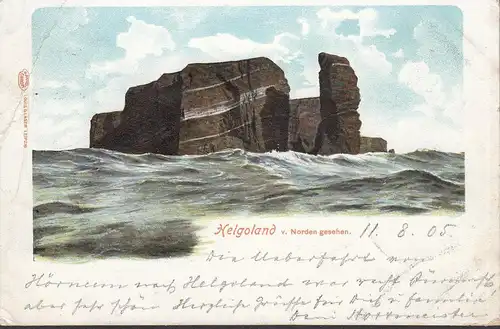 Helgoland v. Norden gesehen. 11. 8. 05.
Die Ueberfahrt von
Hörnum nach Helgoland war recht
aber sehr schön Herzliche Grüsse für Dich u. Familie
Dein